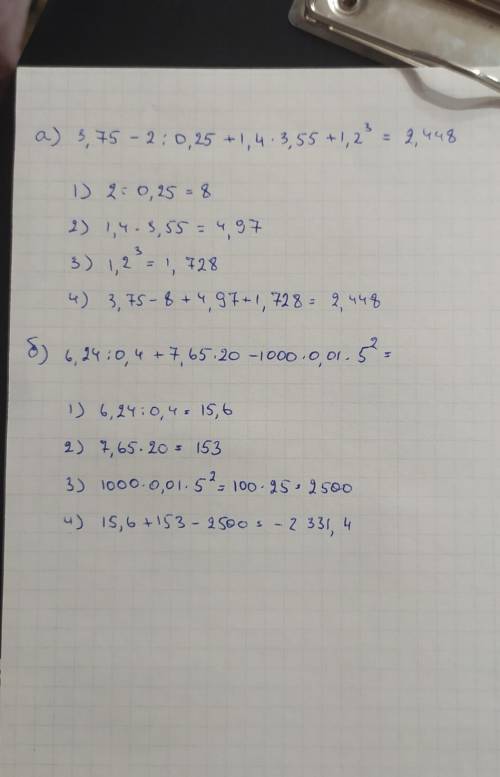 а) 3,75 - 2 : 0,25 + 1,4 · 3,55 + 1,2³ = 2,448
1) 2 : 0,25 = 8
2) 1,4 · 3,55 = 4,97
3) 1,2³ = 1,728
4) 3,75 - 8 + 4,97 + 1,728 = 2,448
б) 6,24 : 0,4 + 7,65 · 20 - 1000 · 0,01 · 5² =
1) 6,24 : 0,4 = 15,6
2) 7,65 · 20 = 153
3) 1000 · 0,01 · 5² = 100 · 25 = 2500
4) 15,6 + 153 - 2500 = -2 331,4